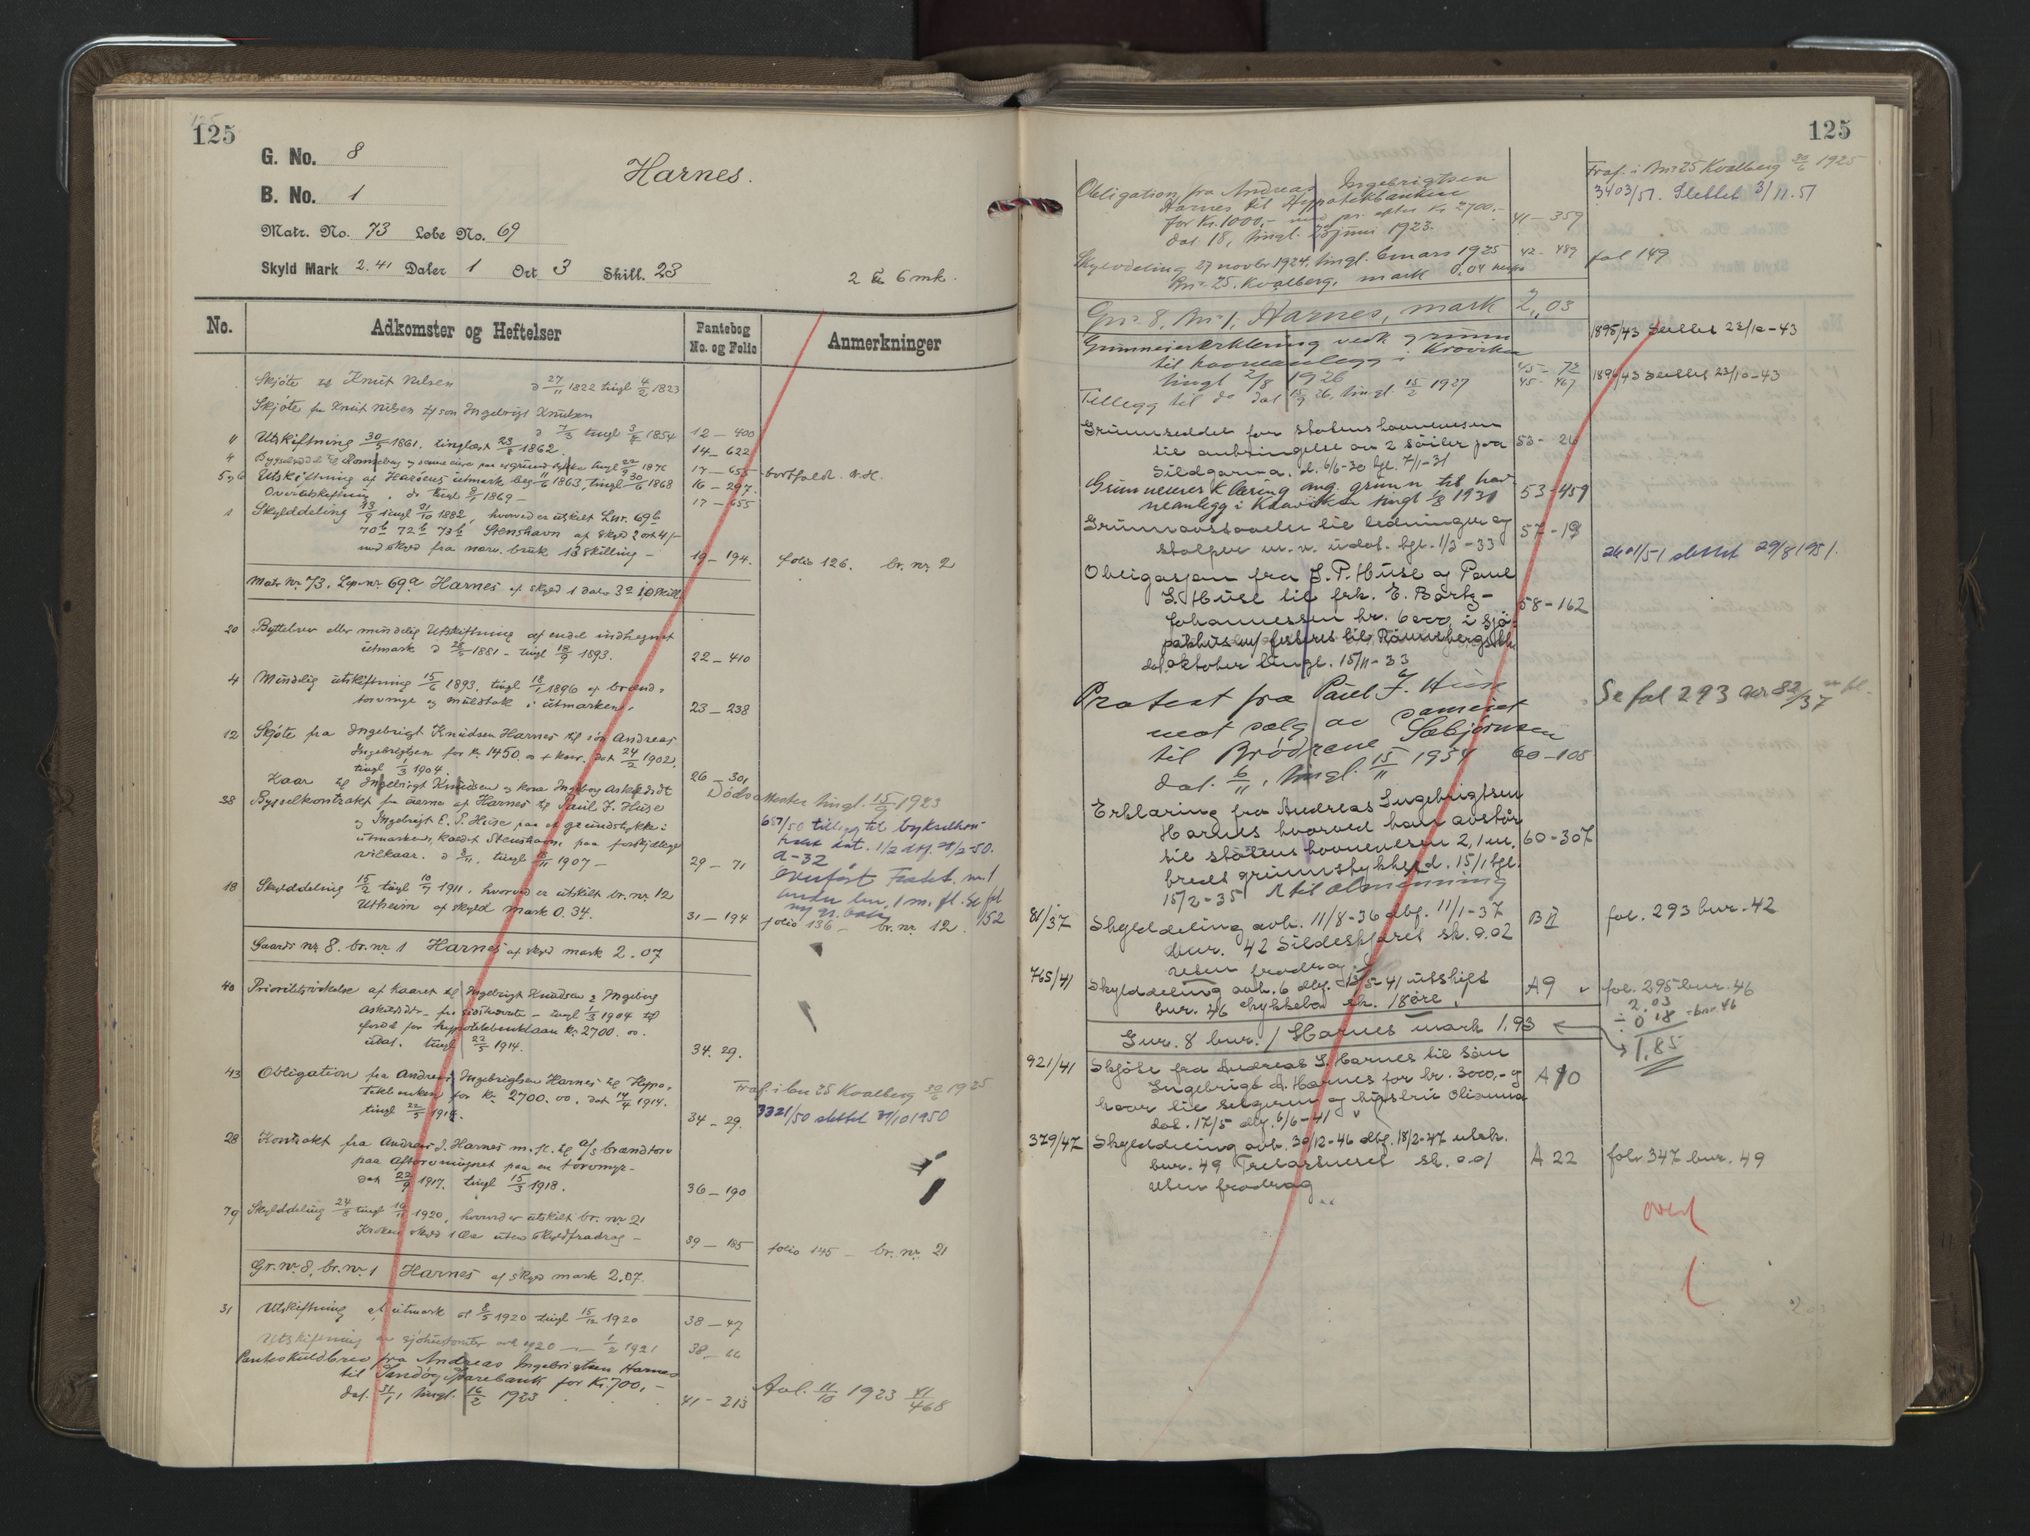 125
G. No. 8
Harnes.
B. No. 1
Matr. No. 73 Løbe No. 69
Skyld Mark 2.41 Daler 1 Ort 3 Skill. 23
2 6 mk.
No. Adkomster og Heftelser Pantebog No. og Folio Anmerkninger
Skjøte Knut Nilsen d 27/11 1822 tingl 4/2 1823
Skjøte fra Knut Nilsen til søn Ingebrigt Knutsen
d 7/3 tingl 1854 12 — 400
Utskiftning 30/5 1861, tinglæst 1862. 14 — 622
17 — 655 bortfaldt
5 og 6 Utskiftning af Harøens utmark 1863, tingl 30/6 1868 16 — 297.
Overutskiftning do tingl 1869 — 17 — 655
1 Skylddeling tingl 1882, hvorved er utskilt Lnr. 69b
70b 72b 73b Stenshavn af skyld 2 ort 4/—
med skyld fra nærv. bruk 13 skilling — 19 — 194. folio 126. br. nr. 2
Matr. Nr. 73. Løp-nr. 69a Harnes af skyld 1 daler 3 10 skill.
20 Byttebrev eller mindelig Utskiftning af endel indhegnet
utmark d 1881 — tingl 18/9 1893. 22 — 410
4 Mindlig utskiftning 15/6 1893, tingl 18/1 1896 af brænd-
torvmyr og muldtak i utmarken. 23 — 238
12 Skjøte fra Ingebrigt Knudsen Harnes til søn Andreas
Ingebrigtsen for Kr. 1450.00 + kaar. dat 24/2 1902.
tingl 1/3 1904. 26 — 301
Kaar til Ingebrigt Knudsen og kone Ingeborg Askildsdt
Dødsattester tingl. 15/9 1923
38 Bygselkontrakt fra eierne af Harnes til Paul J. Huse
og Ingebrigt E. P. Huse paa et grundstykke i
utmarken, kaldt Stenshavn, paa forskjellige
vilkaar. d 8/11, tingl 1907 — 29 — 71
687/50 tillegg til bykselkon-
trakt dat. 1/2 dbf. 2-50.
a-32
overført
18 Skylddeling 15/2 tingl 1911, hvorved er utskilt br. nr. 12
Utheim af skyld mark 0.34. 31 — 194 folio 136 — br. nr. 12.
Gaards nr. 8. br. nr. 1 Harnes af skyld mark 2.07
40 Prioritetsvikelse af kaaret til Ingebrigt Knudsen & Ingeborg
Askildsdr. — tingl 1/3 1904 til
fordel for hypotekbanklaan Kr. 2700.00.
udat. tingl 22/5 1914. 34. 29.
43 Obligation fra Andreas Ingebrigtsen Harnes til Hypo-
tekbanken for Kr. 2700.00. dat 14/4 1914.
tingl 22/5 1914. 34 — 29.
Fraf. i bnr 25 Kvalberg 1925
3321/50 slettet 1950
28 Kontrakt fra Andreas I. Harnes m. fl. til A/S brændtorv
paa aftorvningsret paa en torvmyr —
dat 22/9 1917. tingl 15/3 1918. 36 — 190
79 Skylddeling 24/8 tingl 1920, hvorved er utskilt br. nr. 21
Kroken skyld 1 øre uten skyldfradrag — 39 — 185 folio 145 — br. nr. 21
Gr. nr. 8, br. nr. 1 Harnes af skyld mark 2.07.
31 Utskiftning af utmark af 8/5 1920 tingl 15/12 1920 38 — 47
Utskiftning av sjøhustomter 1920 — 1/2 1921 38 — 66
Panteskuldbrev fra Andreas Ingebrigtsen Harnes
til Sandøy Sparebank for Kr. 700,—
dat. 31/1, tingl. 16/2 1923 41 — 213 Avl. 11/10 1923 41/468
125
Obligation fra Andreas Ingebrigtsen
Harnes til Hypotekbanken
for Kr. 1000,— med pr. efter Kr 2700.—
dat 18, tingl. 23 juni 1923. 41 — 359
Fraf. i Bnr 25 Kvalberg 1925
3403/51. Slettet 3/11.51
Skylddeling 27 novbr 1924, tingl. 6 mars 1925 42 — 489 fol 149
Bnr 25. Kvalberg, mark 0,04
Gnr 8, Bnr 1, Harnes, mark 2,03
Grunneiererklæring vedk grunn
til havneanlegg i Kraavika
tingl 2/8 1926 45 — 72 1895/43 Slettet 22/10-43
Tillegg til do dat 26, tingl. 15/2 1927 45 — 467 1896/43 Slettet 23/10-43
Grunnseddel for statens havnevesen
til anbringelse av 2 søiler paa
Sildgarna. d. 6/6-30 tgl. 7/1-31 53 — 26
Grunneiererklæring ang. grunn til hav-
neanlegg i Kraaviken tingl 1931 53 — 459
Grunnavstaaelse til ledninger og
stolper m. v. udat. tgl. 1/2-33 57 — 19
Obligasjon fra J. P. Huse og Paul
J. Huse til frk. E. Børtz—
Johannessen kr. 6000, i sjø-
pakhus m/ festeret til Rønnebergs
dat. oktober tingl. 15/11-33 58 — 162
2601/51 slettet 29/8 1951.
Protest fra Paul J. Huse
mot salg av sameiet
til Brødrene Sæbjørnsen
dat. 6/11, tingl. 15/11 1934 60 — 108
Se fol 293 bnr
Erklæring fra Andreas Ingebrigtsen
Harnes hvorved han avstår
til statens havnevesen 2,1 m.
bredt grunnstykke d. 15/1 tgl.
15/2-35 til almenning 60 — 307
81/37 Skylddeling avh. 11/8-36 dbf. 11/1-37
bnr. 42 Sildeskjæret sk. 0.02
uten fradrag. B fol. 293 bnr. 42
765/41 Skylddeling avh. 6 dbf. 12/5-41 utskilt
bnr. 46 sk. 18 øre. A9 fol. 295 bnr. 46
2.03
÷ 0.18 - bnr. 46
1,85
Gnr. 8 bnr. 1 Harnes mark 1.93
921/41 Skjøte fra Andreas I. Harnes til søn
Ingebrigt A. Harnes for kr. 3000,— og
kaar til selgeren og hustru Olianna
dat. 17/5 dbf. 6/6-41 A10
379/47 Skylddeling avh. 30/12-46 dbf. 18/2-47 utsk.
bnr. 49 sk. 0.01
uten fradrag A 22 fol. 347 bnr. 49
over